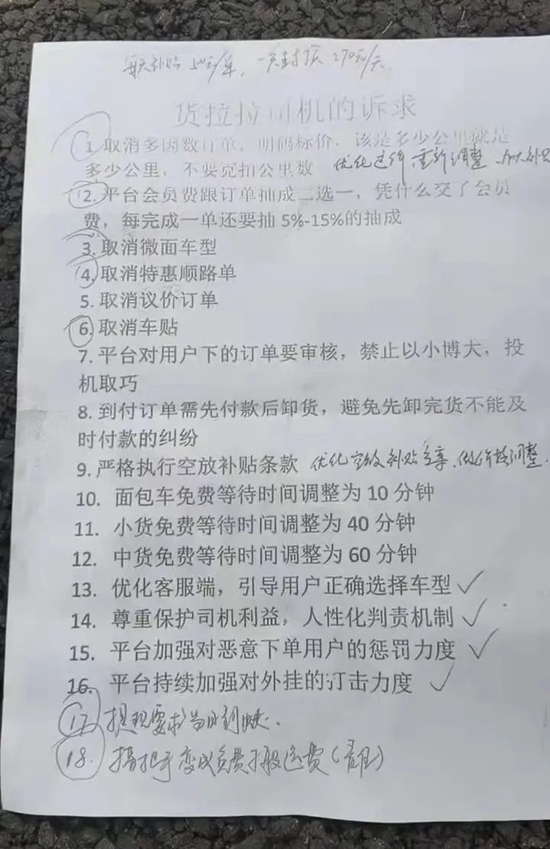 一天封顶270元/天
货拉拉司机的诉求
1. 取消多因数订单，明码标价，该是多少公里就是
多少公里，不要克扣公里数 优化这价 重新调整
2. 平台会员费跟订单抽成二选一，凭什么交了会员
费，每完成一单还要抽 5%-15%的抽成
3. 取消微面车型
4. 取消特惠顺路单
5. 取消议价订单
6. 取消车贴
7. 平台对用户下的订单要审核，禁止以小博大，投
机取巧
8. 到付订单需先付款后卸货，避免先卸完货不能及
时付款的纠纷
9. 严格执行空放补贴条款 优化空放补贴 做价格调整
10. 面包车免费等待时间调整为 10 分钟
11. 小货免费等待时间调整为 40 分钟
12. 中货免费等待时间调整为 60 分钟
13. 优化客服端，引导用户正确选择车型 ✓
14. 尊重保护司机利益，人性化判责机制 ✓
15. 平台加强对恶意下单用户的惩罚力度 ✓
16. 平台持续加强对外挂的打击力度 ✓
17. 提现要求当时到账.
18. 变成免费搬运费